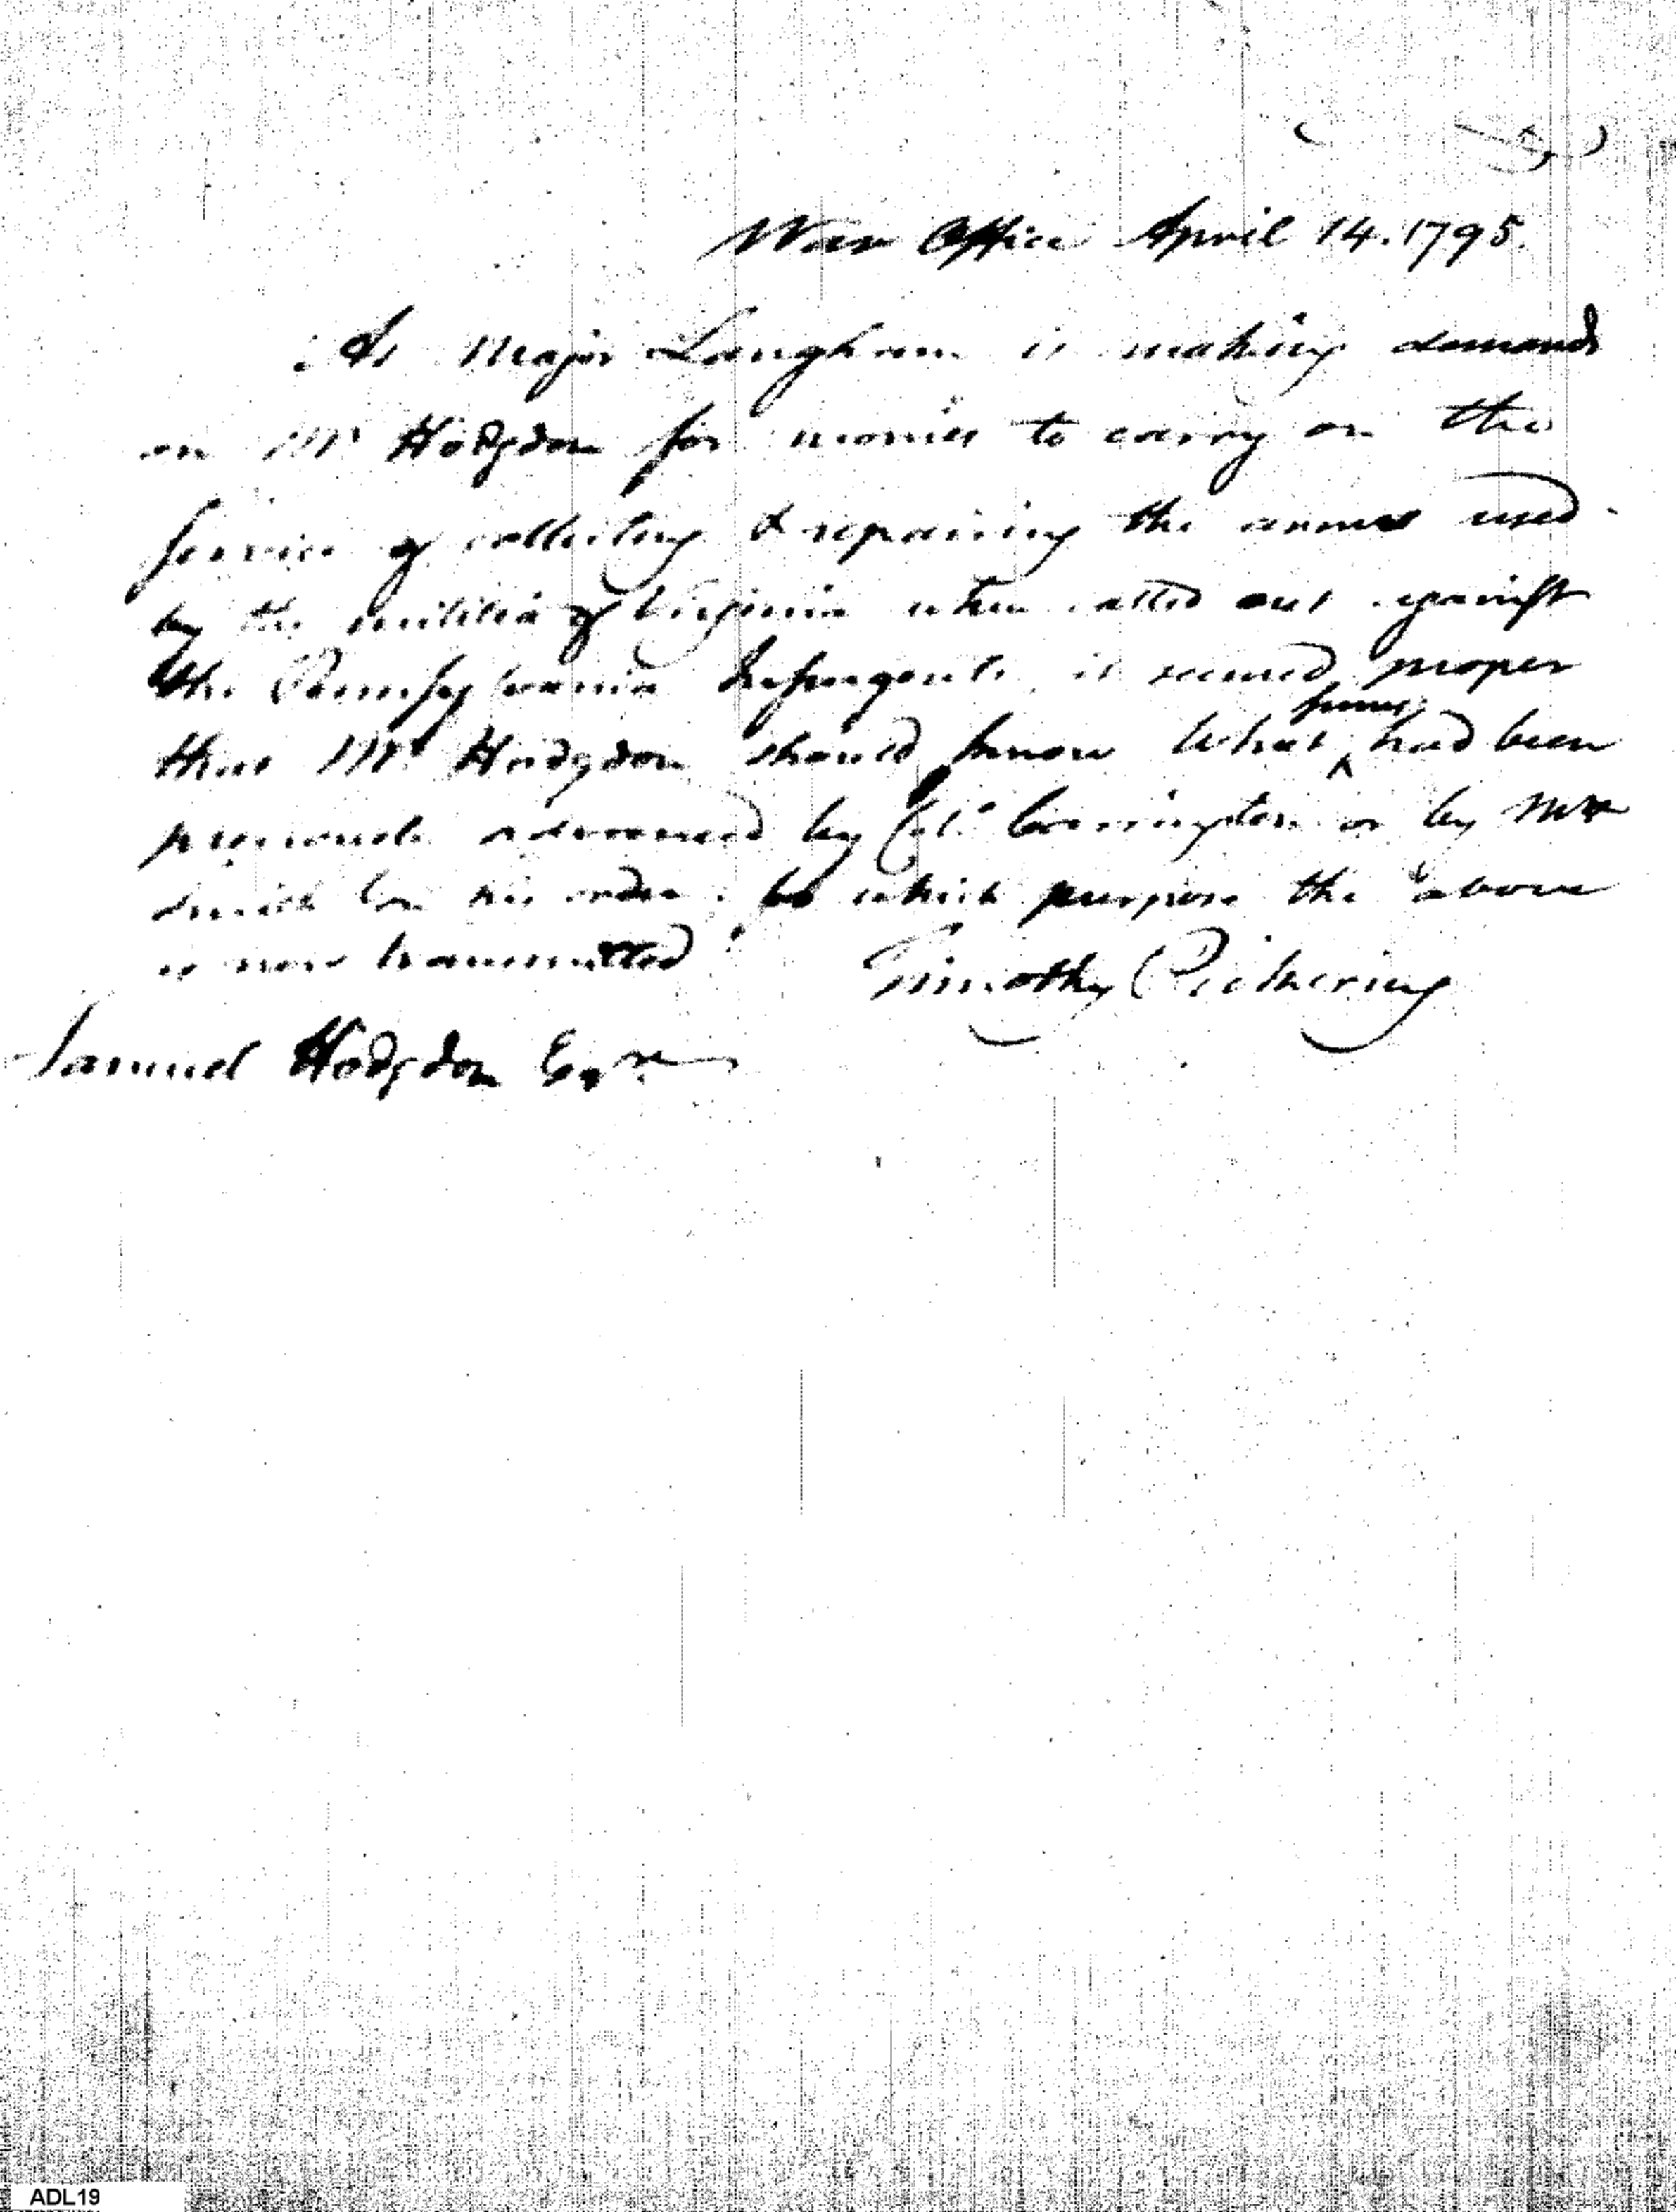 War Office April 14. 1795.
As Major Langham is making demands
on Mr Hodgdon for monies to carry on the
service of collecting & repairing the arms used
by the militia of Virginia when called out against
the Pennsylvania Insurgents, it seemed proper
that Mr Hodgdon should know what sums had been
previously advanced by Col. Carrington or by
his order. to which purpose the above
is now transmitted
Timothy Pickering
Samuel Hodgdon Esqr
ADL19